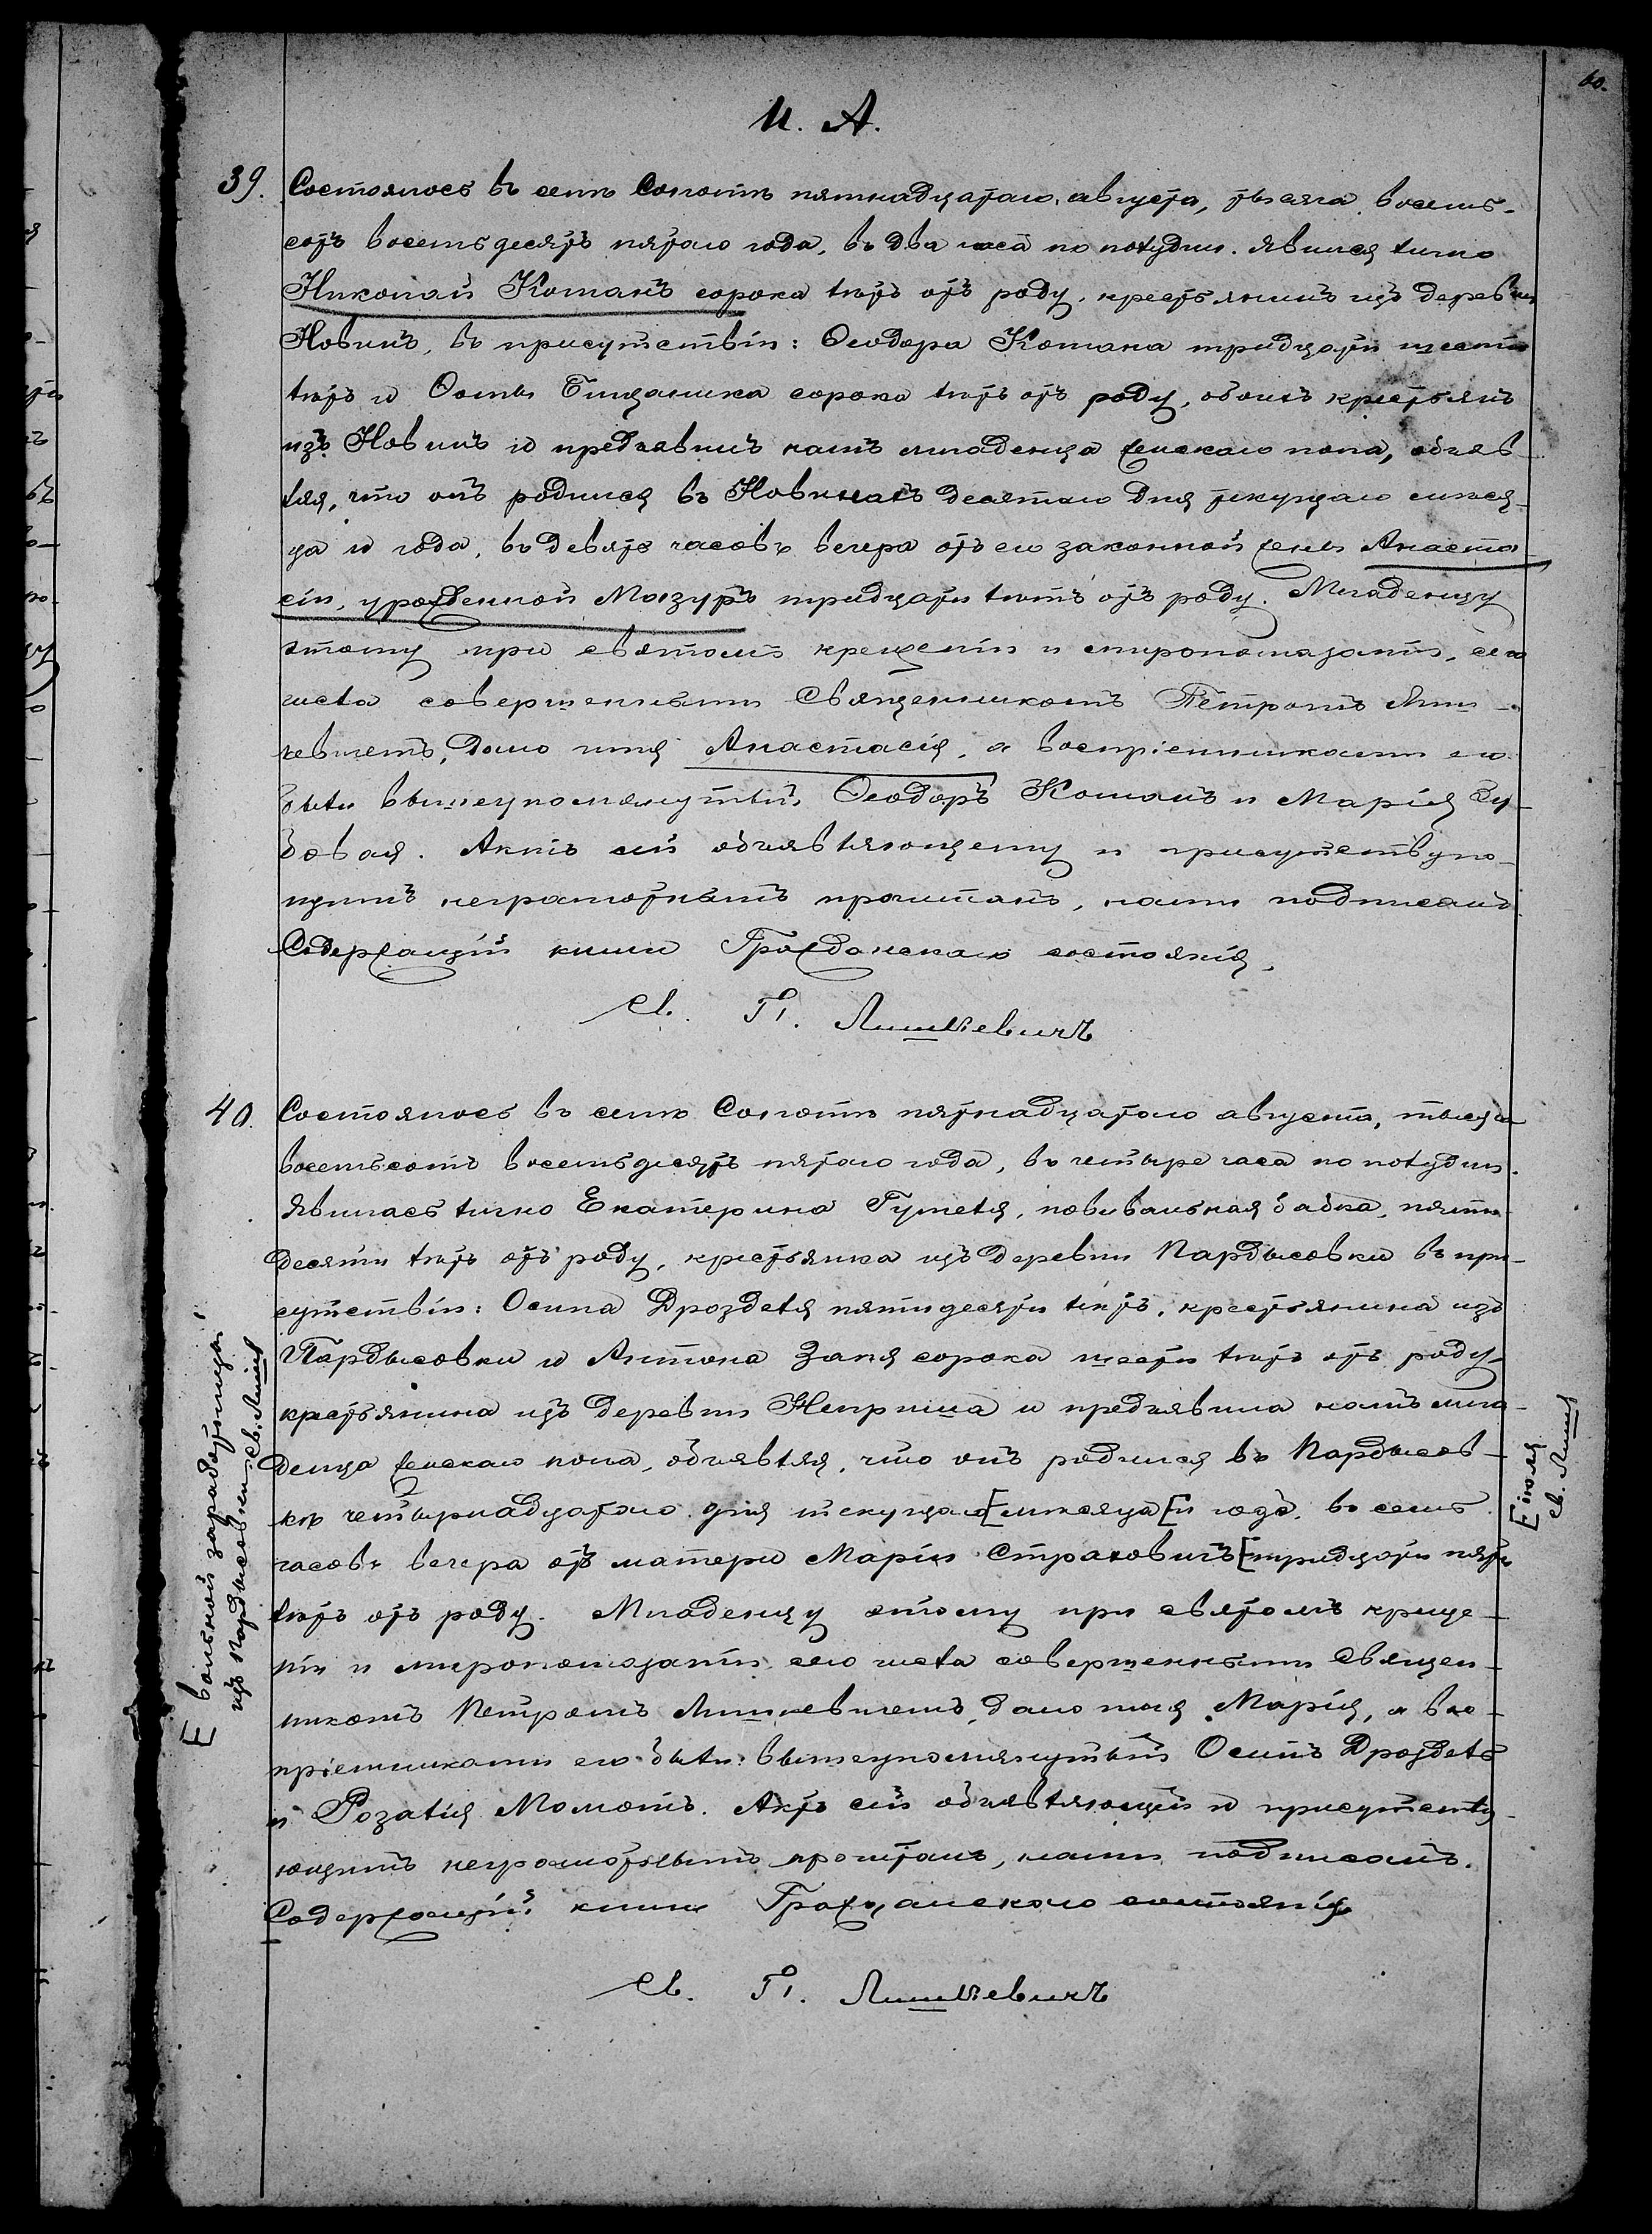 60.
И. А.
39. Состоялось въ селѣ Солотѣ пятнадцатаго августа, тысяча восемь-
сотъ восемьдесятъ пятаго года, въ два часа по полудни. Явился лично
Николай Команъ сорока лѣтъ отъ роду, крестьянинъ изъ деревни
Новинъ, въ присутствіи: Ѳеодора Комана тридцати шести
лѣтъ и Ѳомы сорока лѣтъ отъ роду, обоихъ крестьянъ
изъ Новинъ и предъявилъ намъ младенца женскаго пола, объяв-
ляя, что онъ родился въ Новинахъ десятаго дня текущаго мѣся-
ца и года, въ девять часовъ вечера отъ его законной жены Анаста-
сіи, урожденной Мазуръ тридцати лѣтъ отъ роду. Младенцу
этому при святомъ крещеніи и миропомазаніи, сего
числа совершенными Священникомъ Петромъ Лиш-
кевичемъ, дано имя Анастасія, а воспріемниками его
были вышеупомянутый Ѳеодоръ Команъ и Марія Ду-
бовая. Актъ сей объявляющему и присутствую-
щимъ неграмотнымъ прочитанъ, нами подписанъ.
Содержащій книги Гражданскаго состоянія,
Св. П. Лишкевичъ
40. Состоялось въ селѣ Солотѣ пятнадцатаго августа, тысяча
восемьсотъ восемьдесятъ пятаго года, въ четыре часа по полудни.
Явилась лично Екатерина Гумеля, повивальная бабка, пяти-
десяти лѣтъ отъ роду, крестьянка изъ деревни Пардысовки въ при-
сутствіи: Осипа Дроздаля пятидесяти лѣтъ, крестьянина изъ
Пардысовки и Антона Заня сорока шести лѣтъ отъ роду,
крестьянина изъ деревни Неприша и предъявила намъ мла-
денца женскаго пола, объявляя, что онъ родился въ Пардысов-
кѣ четырнадцатаго дня текущаго [мѣсяца [и года, въ семь
часовъ вечера отъ матери Маріи Страховичъ [тридцати пяти
лѣтъ отъ роду. Младенцу этому при святомъ креще-
ніи и миропомазаніи, сего числа совершенными Священ-
никомъ Петромъ Лишкевичемъ, дано имя Марія, а вос-
пріемниками его были: вышеупомянутый Осипъ Дроздель
и Розалія Мамотъ. Актъ сей объявляющей и присутству-
ющимъ неграмотнымъ прочитанъ, нами подписанъ.
Содержащій книги Гражданскаго состоянія
Св. П. Лишкевичъ
[ вольной заработницы
изъ Пардысовки Св. Лишк
[ іюля
Св. Лишк